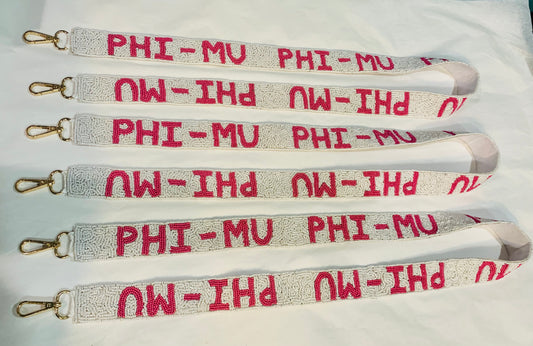 PHI-MU PHI-MU
PHI-MU PHI-MU
PHI-MU PHI-MU
PHI-MU PHI-MU
PHI-MU PHI-MU
PHI-MU PHI-MU